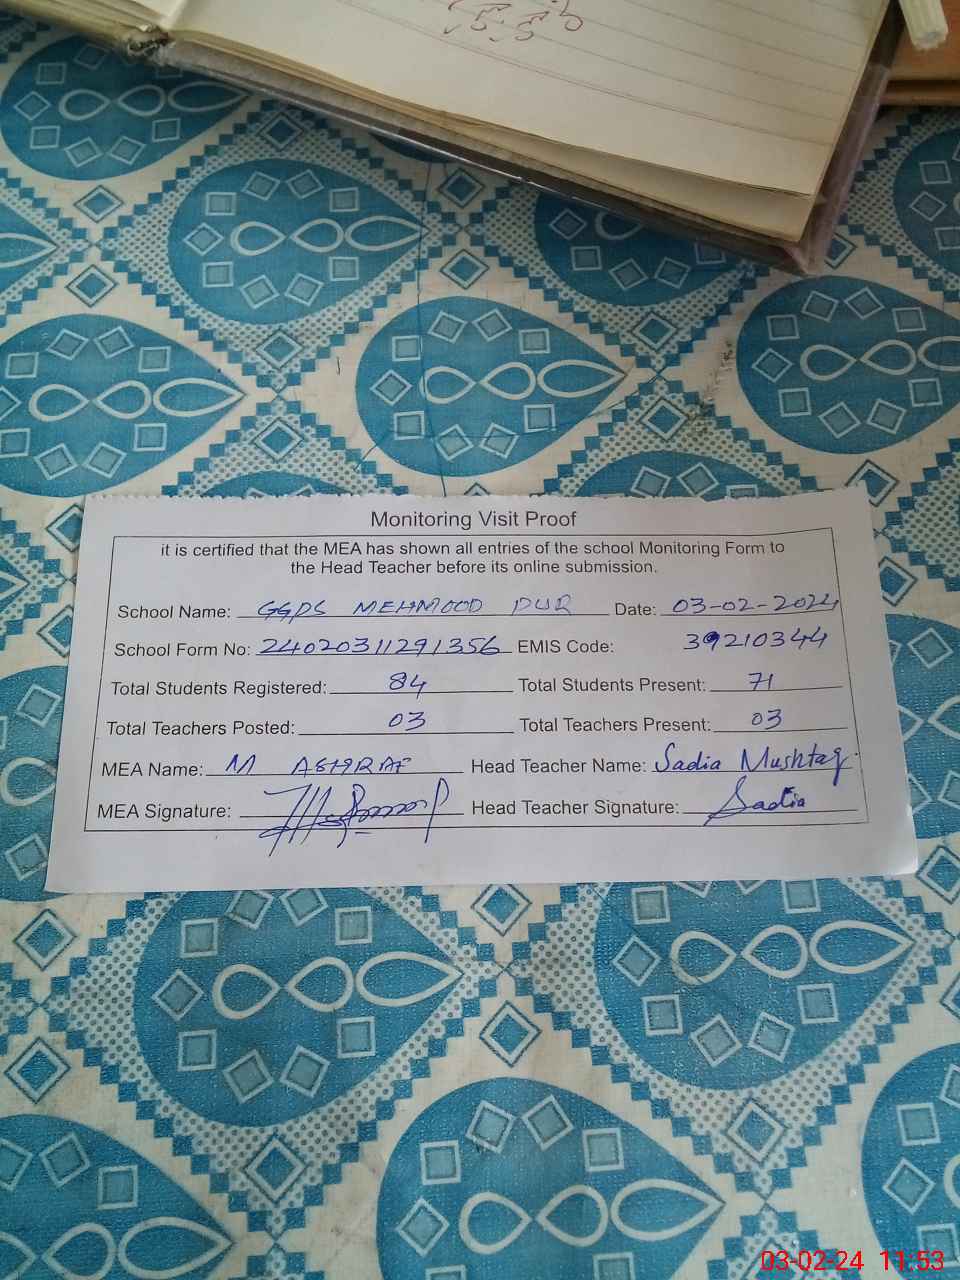 Monitoring Visit Proof
it is certified that the MEA has shown all entries of the school Monitoring Form to
the Head Teacher before its online submission.
School Name: GGPS MEHMOOD PUR Date: 03-02-2024
School Form No: 24020311291356 EMIS Code: 39210344
Total Students Registered: 84 Total Students Present: 71
Total Teachers Posted: 03 Total Teachers Present: 03
MEA Name: M ASHRAF Head Teacher Name: Sadia Mushtaq.
MEA Signature: Head Teacher Signature: Sadia
03-02-24 11:53